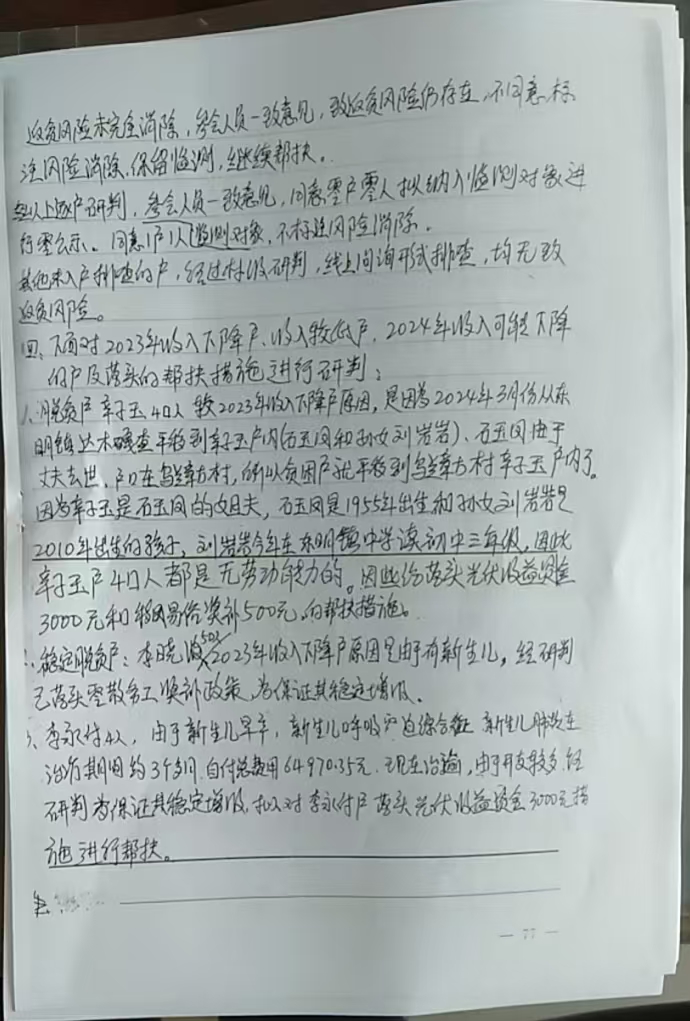 返贫风险未完全消除,参会人员一致意见,致返贫风险仍存在,不同意标
注风险消除,保留监测,继续帮扶。
经以上逐户研判,参会人员一致意见,同意零户零人拟纳入监测对象进
行零公示、同意1户1人监测对象,不标注风险消除。
其他未入户排查的户,经过村级研判,线上问询形式排查,均无致
返贫风险。
四、下面对2023年收入下降户、收入较低户、2024年收入可能下降
的户及落实的帮扶措施进行研判:
1、脱贫户辛子玉4口人较2023年收入下降户原因,是因为2024年3月份从东
明镇达木嘎查平移到辛子玉户内(石玉凤和孙女刘岩岩)、石玉凤由于
丈夫去世,户口在乌兰章古村,所以贫困户就平移到乌兰章古村辛子玉户内了。
因为辛子玉是石玉凤的姐夫,石玉凤是1955年出生和孙女刘岩岩是
2010年出生的孩子,刘岩岩今年在东明镇中学读初中三年级,因此
辛子玉户4口人都是无劳动能力的。因此给落实光伏收益资金
3000元和移风易俗奖补500元,的帮扶措施。
2、稳定脱贫户:李晓波5口人2023年收入下降户原因是由于有新生儿,经研判
已落实零散务工奖补政策,为保证其稳定增收。
3、李永付4人,由于新生儿早产,新生儿呼吸窘迫综合征 新生儿肺炎在
治疗期间约3个多月.自付总费用64970.35元.现在治瘉,由于开支较多.经
研判为保证其稳定增收,拟对李永付户落实光伏收益资金3000元措
施进行帮扶。
— 77 —